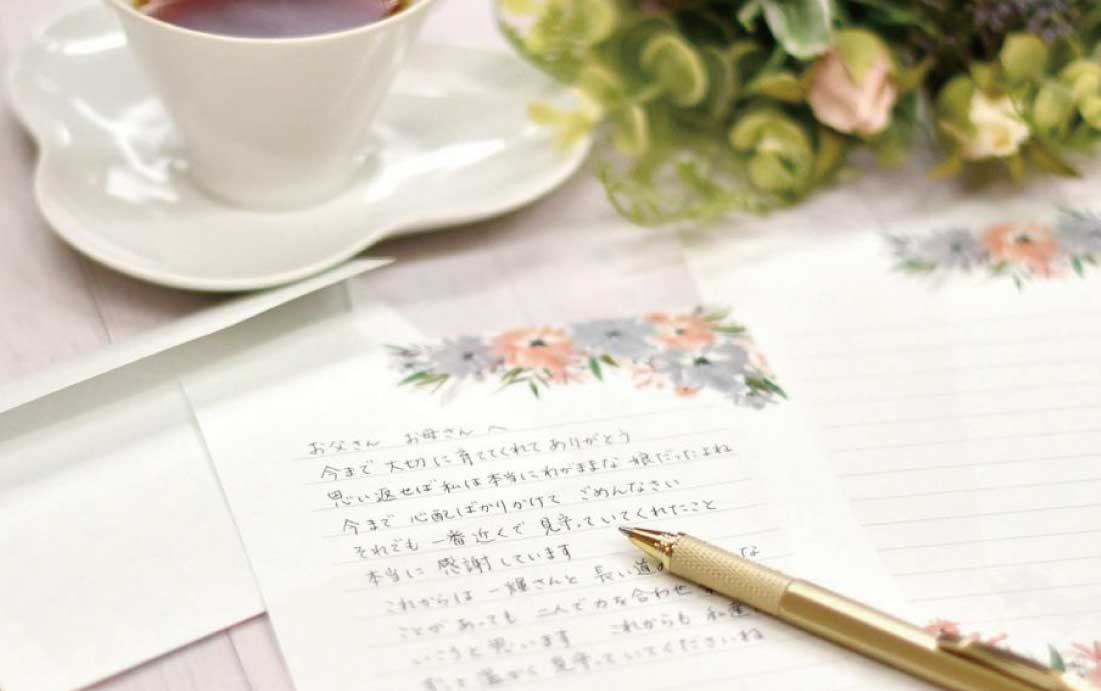 お父さん お母さん へ
今まで 大切に育ててくれて ありがとう
思い返せば 私は本当にわがままな 娘だったよね
今まで 心配ばかりかけて ごめんなさい
それでも 一番近くで 見守っていてくれたこと
本当に 感謝しています
これからは 一輝さんと 長い道の な
ことがあっても 二人で力を合わせ
いこうと思います これからも 私達
ずっと温かく見守っていてくださいね